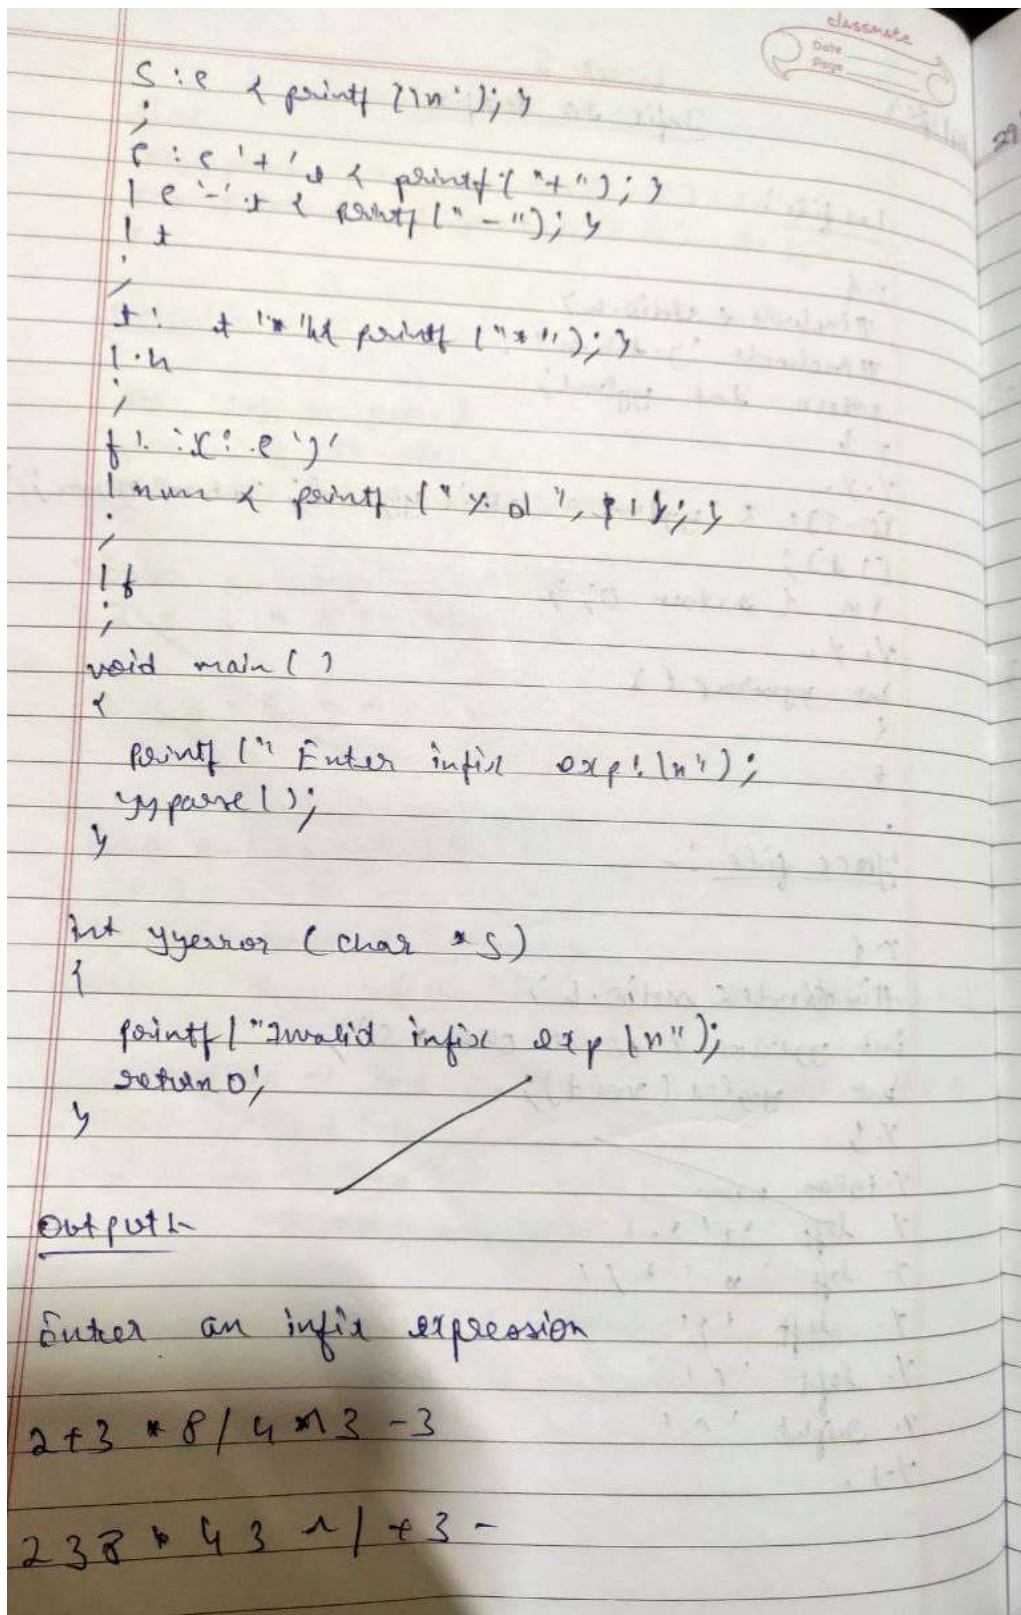 classmate
Date
Page
29
S : e { printf ("\n"); }
;
e : e '+' t { printf ("+"); }
| e '-' t { printf ("-"); }
| t
;
t : t '*' h { printf ("*"); }
| h
;
f : '(' e ')'
| num { printf ("%d", $1); }
;
| f
;
void main ( )
{
printf (" Enter infix exp: \n");
yyparse ();
}
int yyerror (char *s)
{
printf ("Invalid infix exp \n");
return 0;
}
Output:-
Enter an infix expression
2+3*8/4^3-3
238*43^/+3-